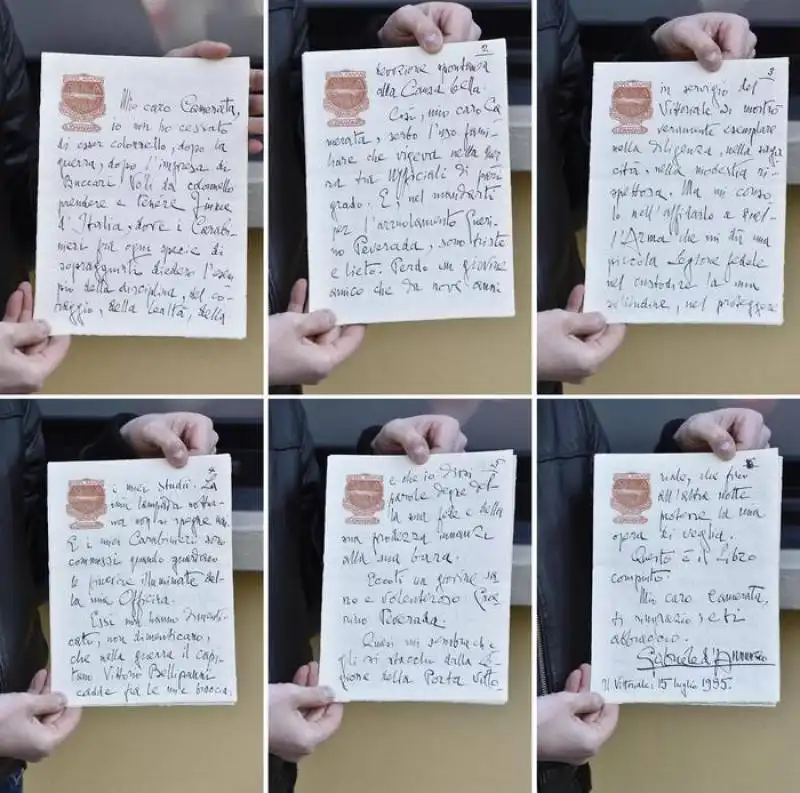 Mio caro Camerata,
io non ho cessato
di esser colonnello, dopo la
guerra, dopo l'impresa di
Buccari. Volli da colonnello
prendere e tenere Fiume
d'Italia, dove i Carabi-
nieri fra ogni specie di
sopraggiunti diedero l'esem-
pio della disciplina, del co-
raggio, della lealtà, della
2
devozione spontanea
alla Causa bella.
Così, mio caro Ca-
merata, serbo l'uso fami-
liare che vigeva nella guer-
ra tra Ufficiali di pari
grado. E, nel mandarti
per l'arruolamento Gueri-
no Peverada, sono triste
e lieto. Perdo un giovine
amico che da nove anni
3
in servigio del
Vittoriale si mostrò
veramente esemplare
nella diligenza, nella saga-
cità, nella modestia ri-
spettosa. Ma mi conso-
lo nell'affidarlo a quel-
l'Arma che mi dà una
piccola Legione fedele
nel custodire la mia
solitudine, nel proteggere
4
i miei studii. La
mia lampada nottur-
na non si spegne mai.
E i miei Carabinieri sono
commossi quando guardano
le finestre illuminate del-
la mia Officina.
Essi non hanno dimenti-
cato, non dimenticano,
che nella guerra il capi-
tano Vittorio Bellipanni
cadde fra le mie braccia.
5
e che io dissi
parole degne del-
la sua fede e della
sua prodezza innanzi
alla sua bara.
Eccoti un giovine sa-
no e volenteroso: Gue-
rino Peverada.
Quasi mi sembra che
egli si stacchi dalla Le-
gione della Porta Vitto-
riale, che fino
all'altra notte
protesse la mia
opera di veglia.
Questo è il Libro
compiuto.
Mio caro Camerata,
ti ringrazio e ti
abbraccio.
Gabriele d'Annunzio
Il Vittoriale: 15 luglio 1935.